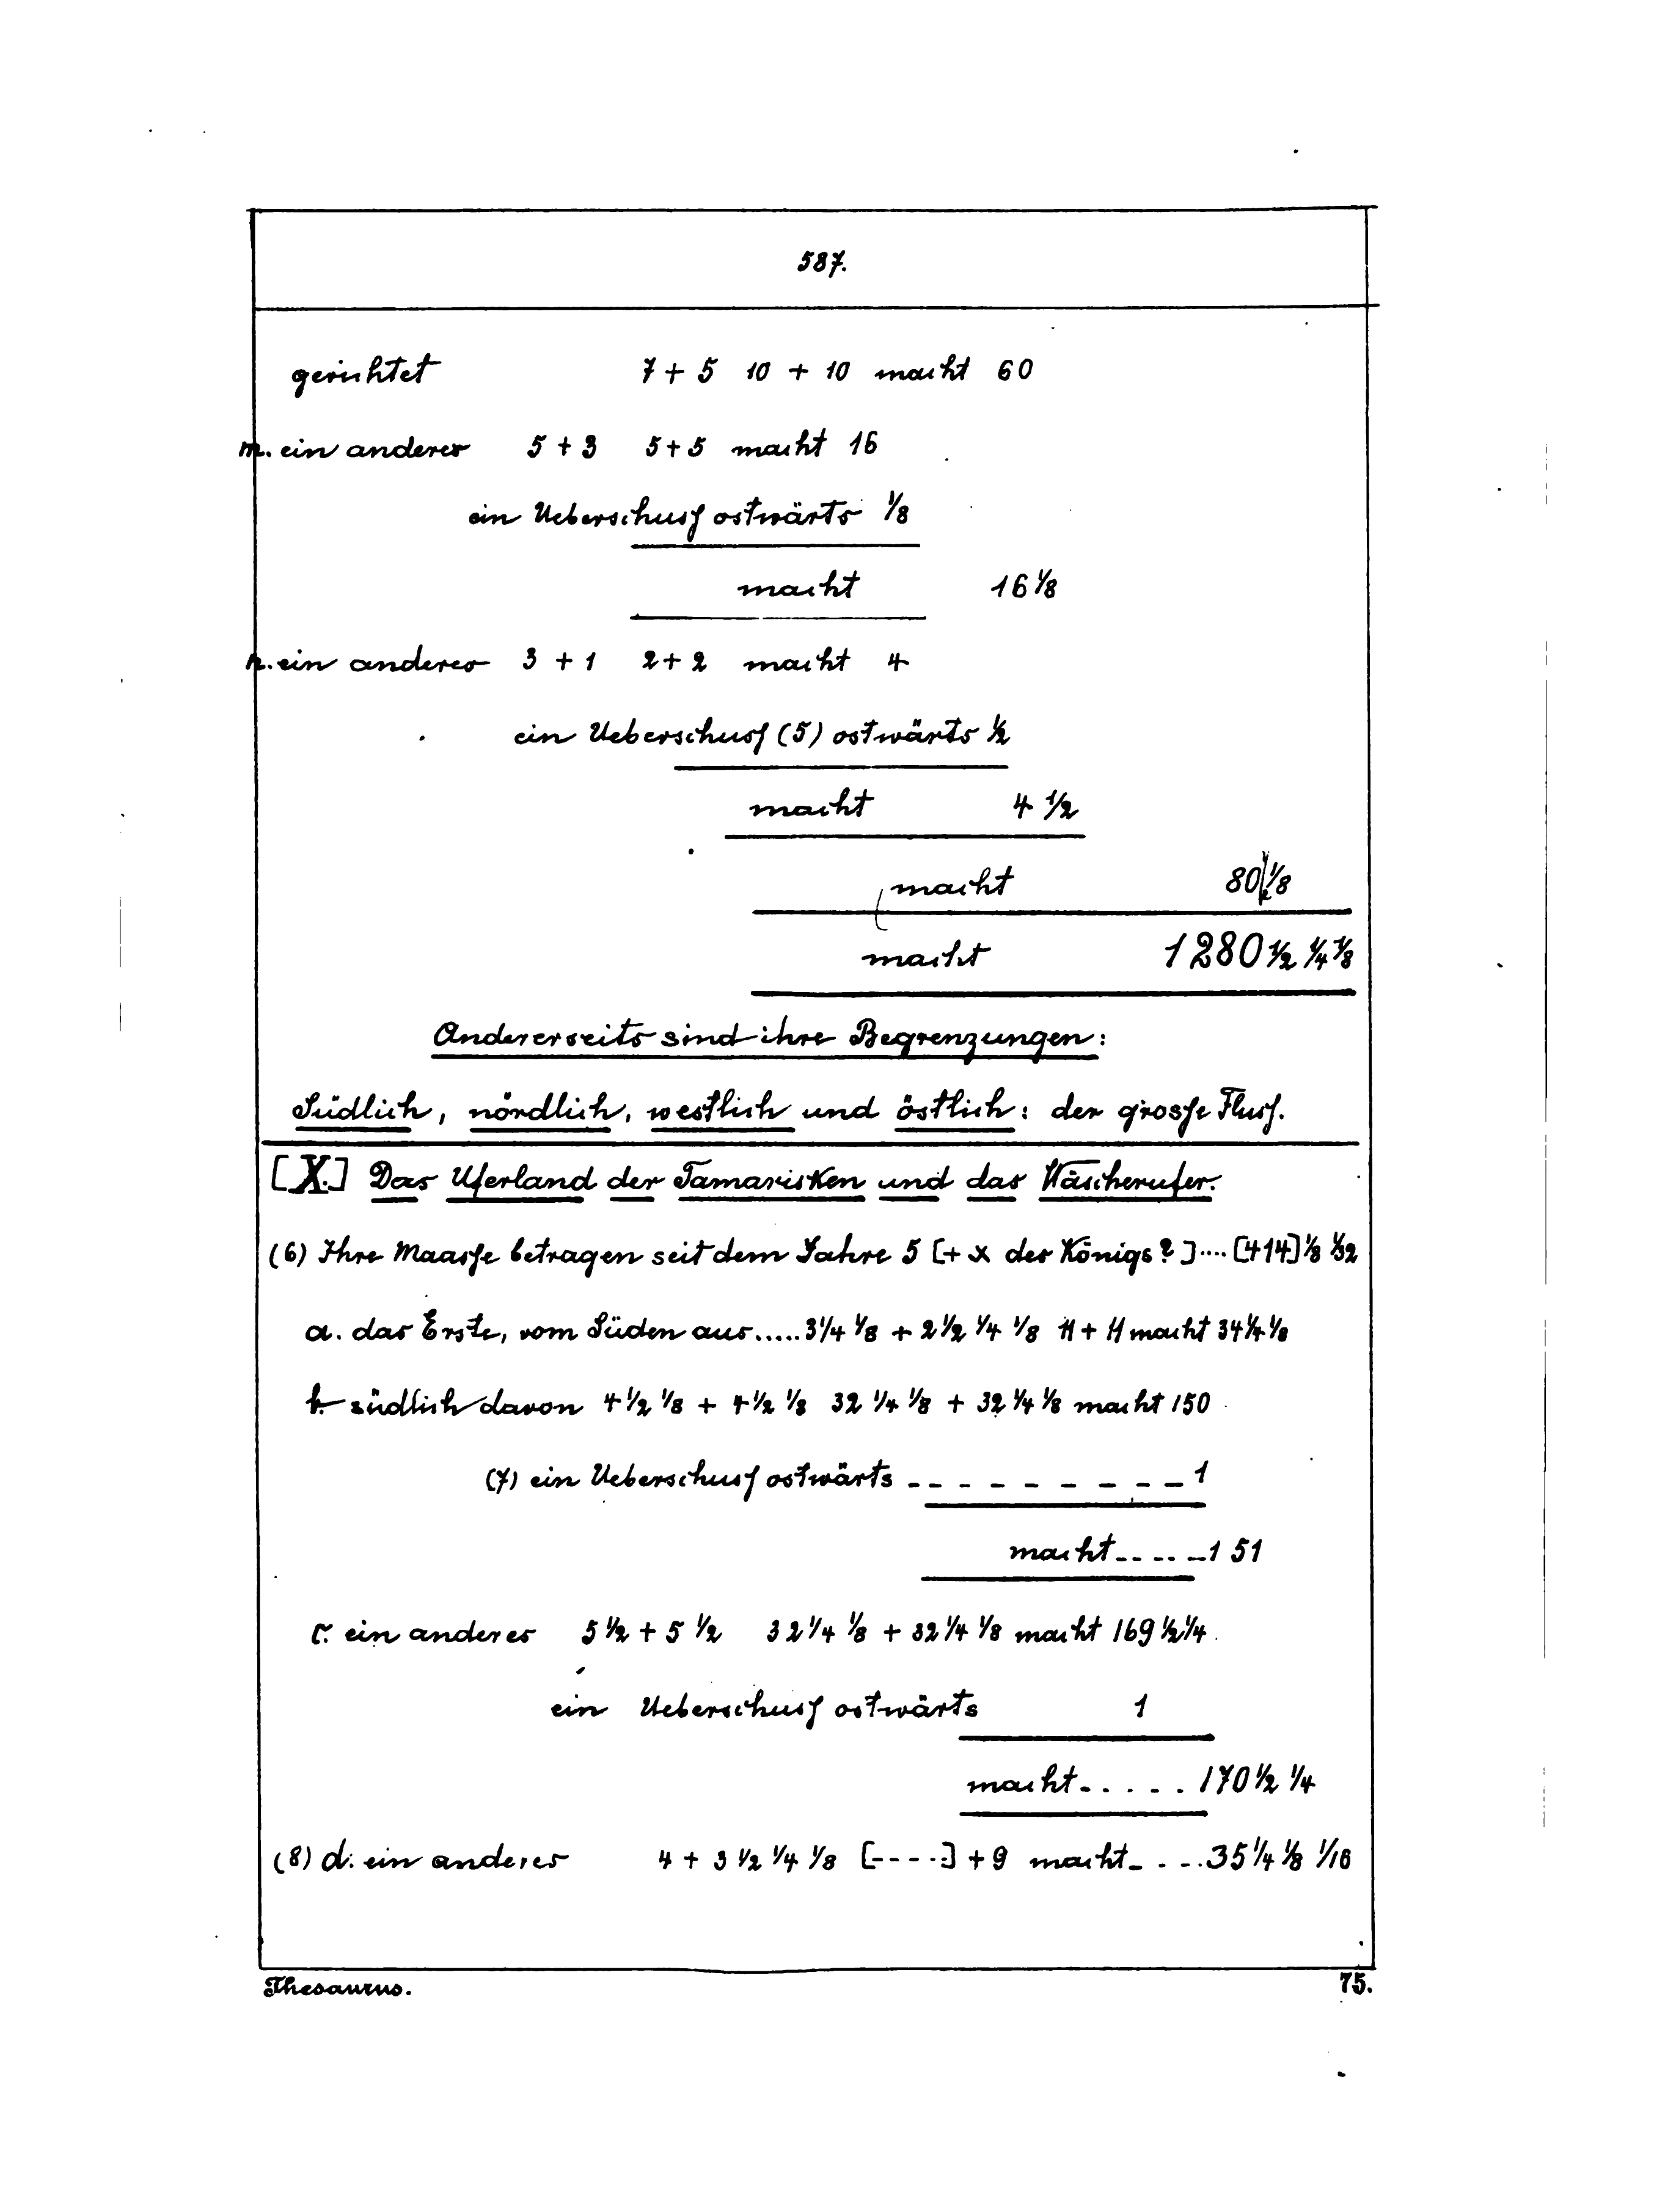 587.
gerichtet 7 + 5 10 + 10 macht 60
m. ein anderes 5 + 3 5 + 5 macht 16
ein Ueberschuss ostwärts 1/8
macht 16 1/8
n. ein anderes 3 + 1 2 + 2 macht 4
ein Ueberschuss (5) ostwärts 1/2
macht 4 1/2
macht 80 1/2 1/8
macht 1280 1/2 1/4 1/8
Andererseits sind ihre Begrenzungen:
Südlich, nördlich, westlich und östlich: der grosse Fluss.
[X.] Das Uferland der Tamarisken und das Wäscherufer.
(6) Ihre Maasse betragen seit dem Jahre 5 [+ x des Königs?] .... [414] 1/8 1/32
a. das Erste, vom Süden aus ..... 3 1/4 1/8 + 2 1/2 1/4 1/8 11 + 11 macht 34 1/4 1/8
b. südlich davon 4 1/2 1/8 + 4 1/2 1/8 32 1/4 1/8 + 32 1/4 1/8 macht 150
(7) ein Ueberschuss ostwärts _ _ _ _ _ _ _ _ _ 1
macht _ _ _ _ _ 151
c. ein anderes 5 1/2 + 5 1/2 32 1/4 1/8 + 32 1/4 1/8 macht 169 1/2 1/4
ein Ueberschuss ostwärts 1
macht . . . . . 170 1/2 1/4
(8) d. ein anderes 4 + 3 1/2 1/4 1/8 [- - - -] + 9 macht _ . . . 35 1/4 1/8 1/16
Thesaurus. 75.